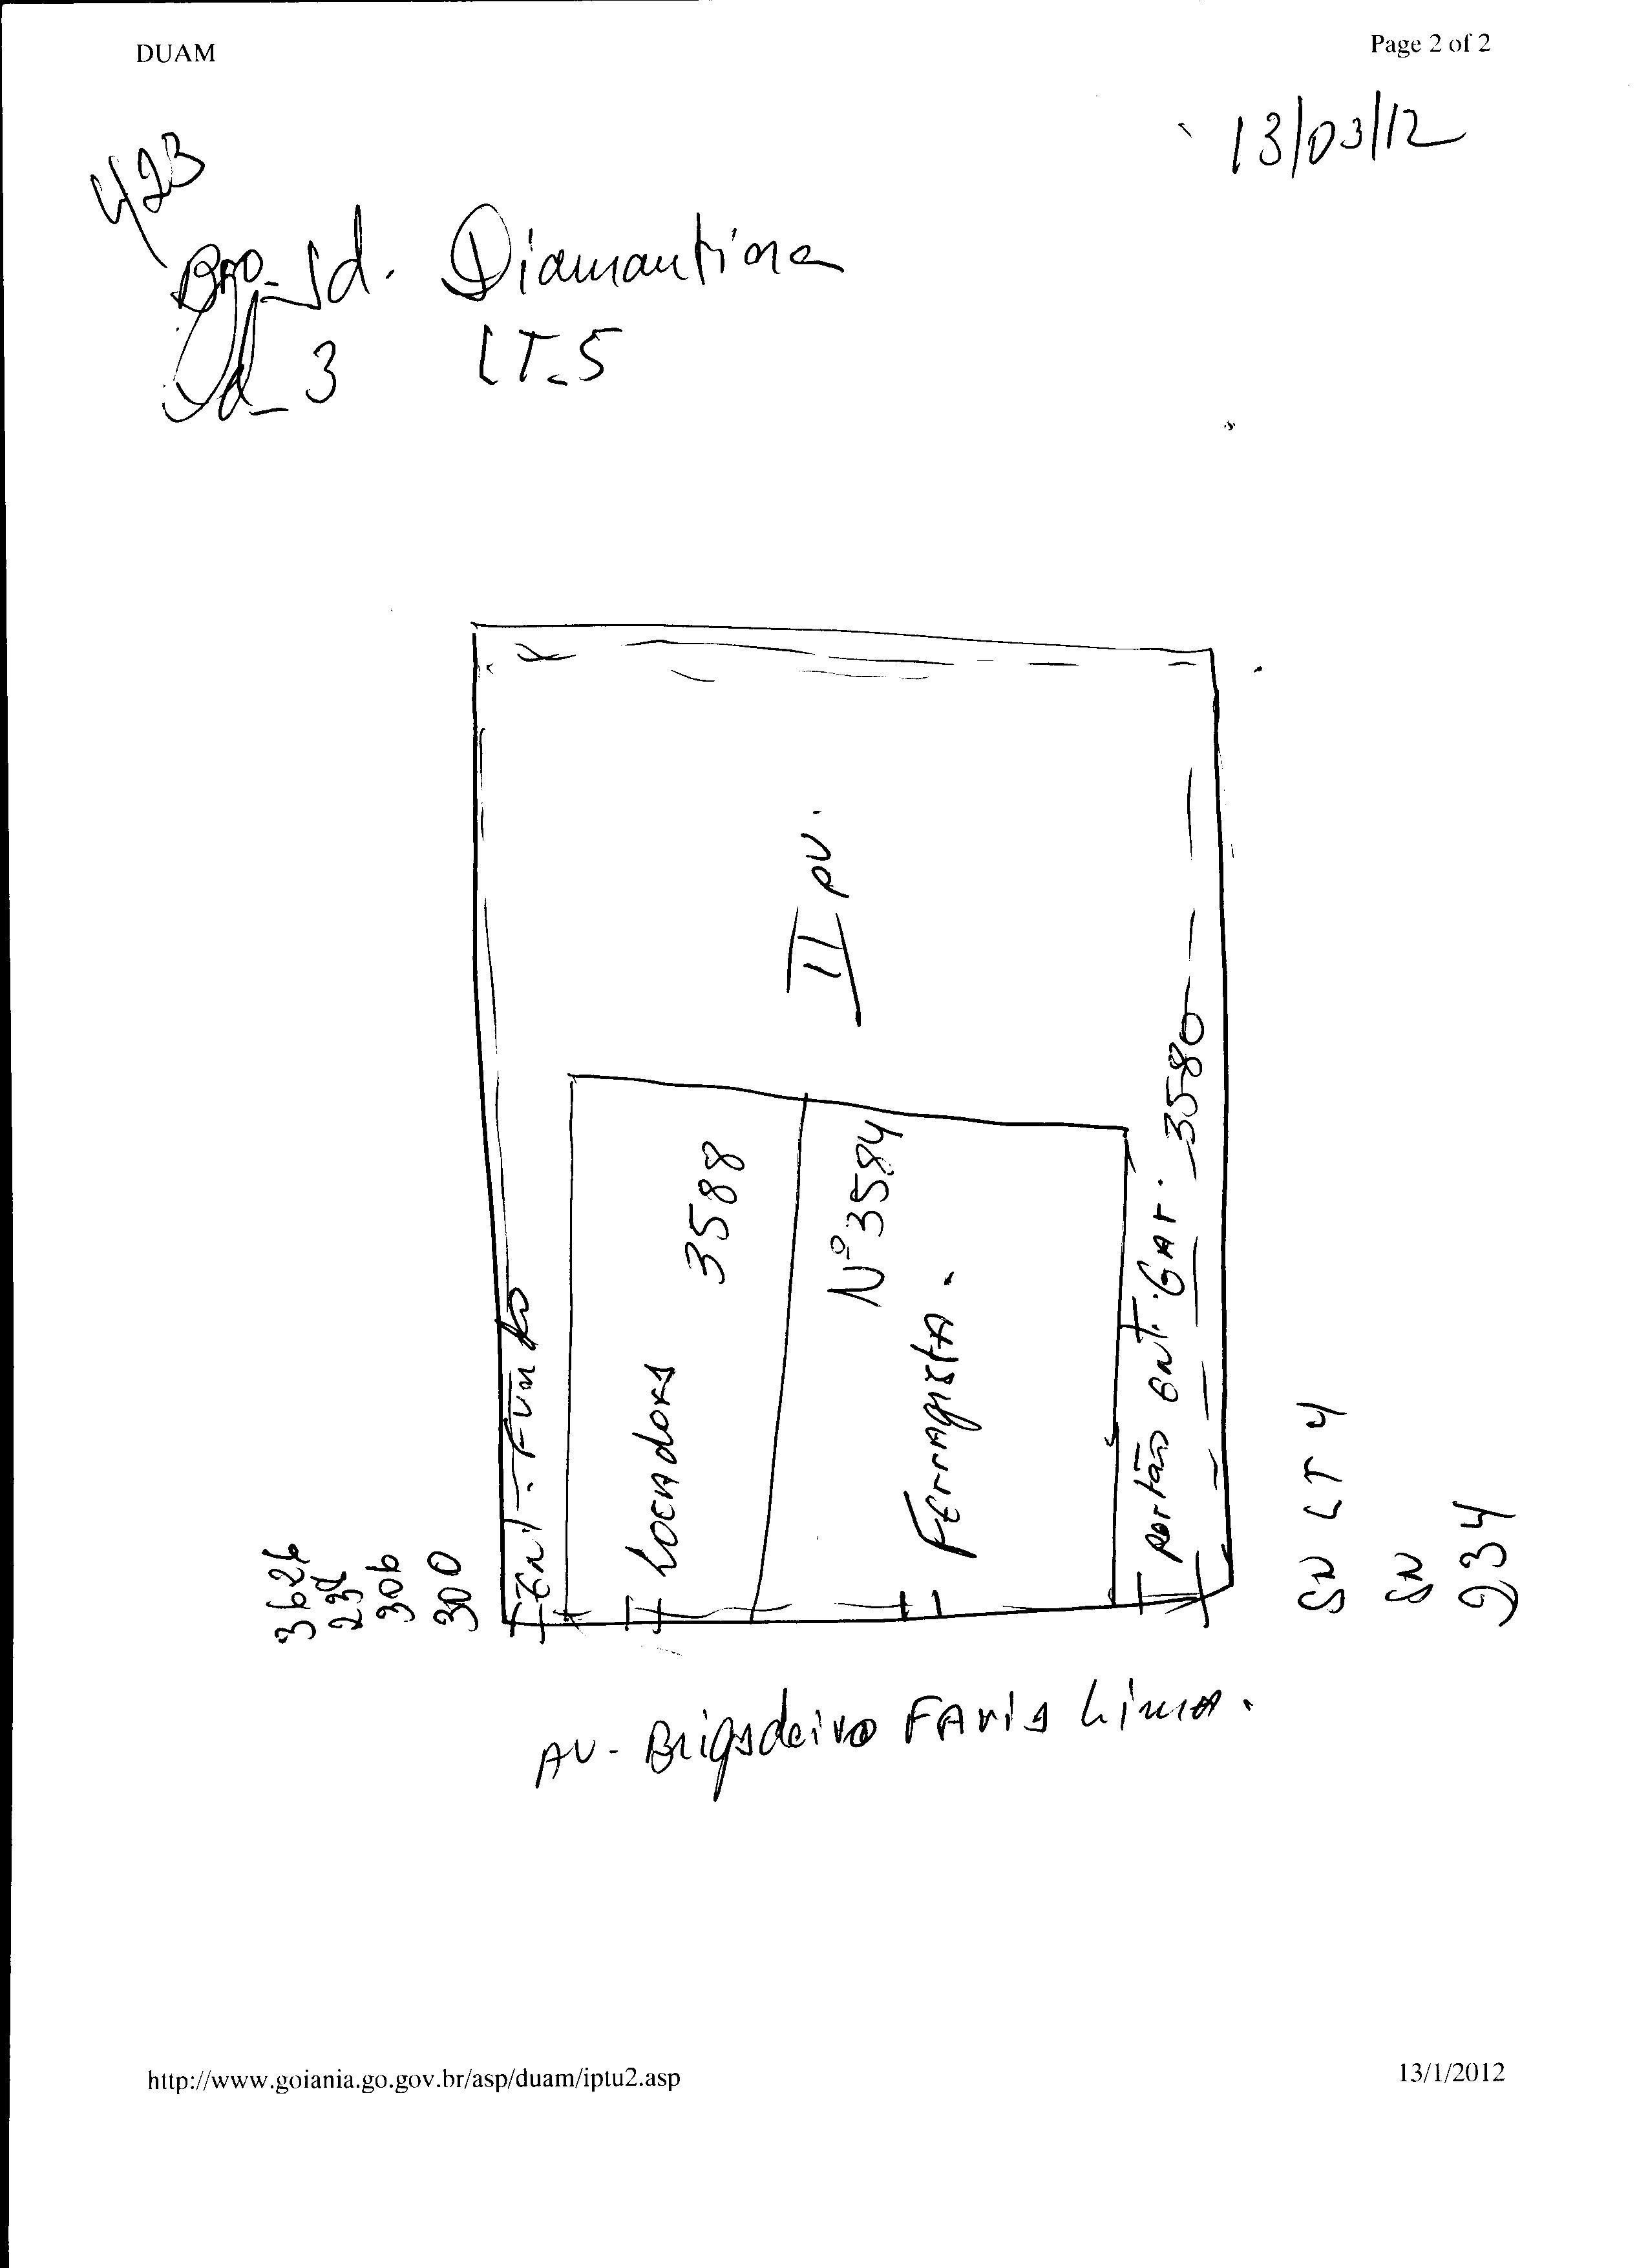 DUAM
Page 2 of 2
13/03/12
423
BRO_Jd. Diamantina
Qd_3 LT_5
II pv.
Ent. Fundo
Locadora
3588
Nº 3584
Ferragista.
portão ent. Gar. 3580
3626
234
306
300
SN LT 4
SN
234
AV- Brigadeiro FAria Lima.
http://www.goiania.go.gov.br/asp/duam/iptu2.asp
13/1/2012